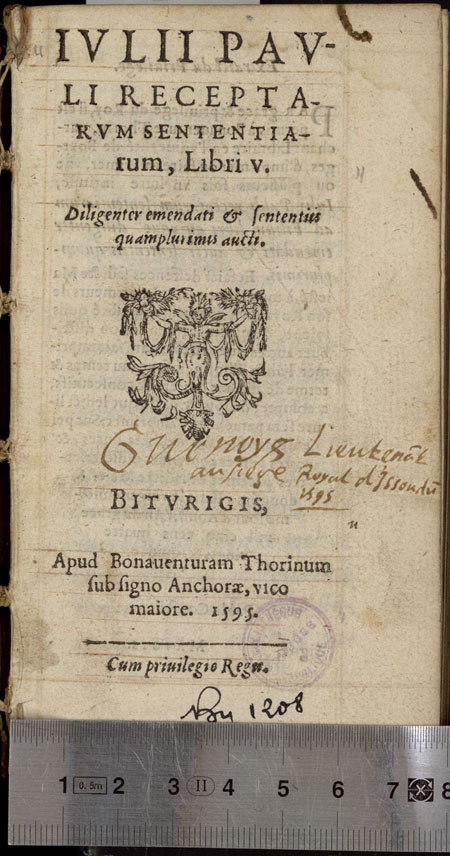 IVLII PAV-
LI RECEPTA-
RVM SENTENTIA-
rum, Libri v.
Diligenter emendati & sententiis
quamplurimis aucti.
Lieutenãt
au siege Royal d'Issoudũ
1595
BITVRIGIS,
Apud Bonauenturam Thorinum
sub signo Anchoræ, vico
maiore. 1595.
Cum priuilegio Regis.
By 1208
1 0.5m 2 3 II 4 5 6 7 8